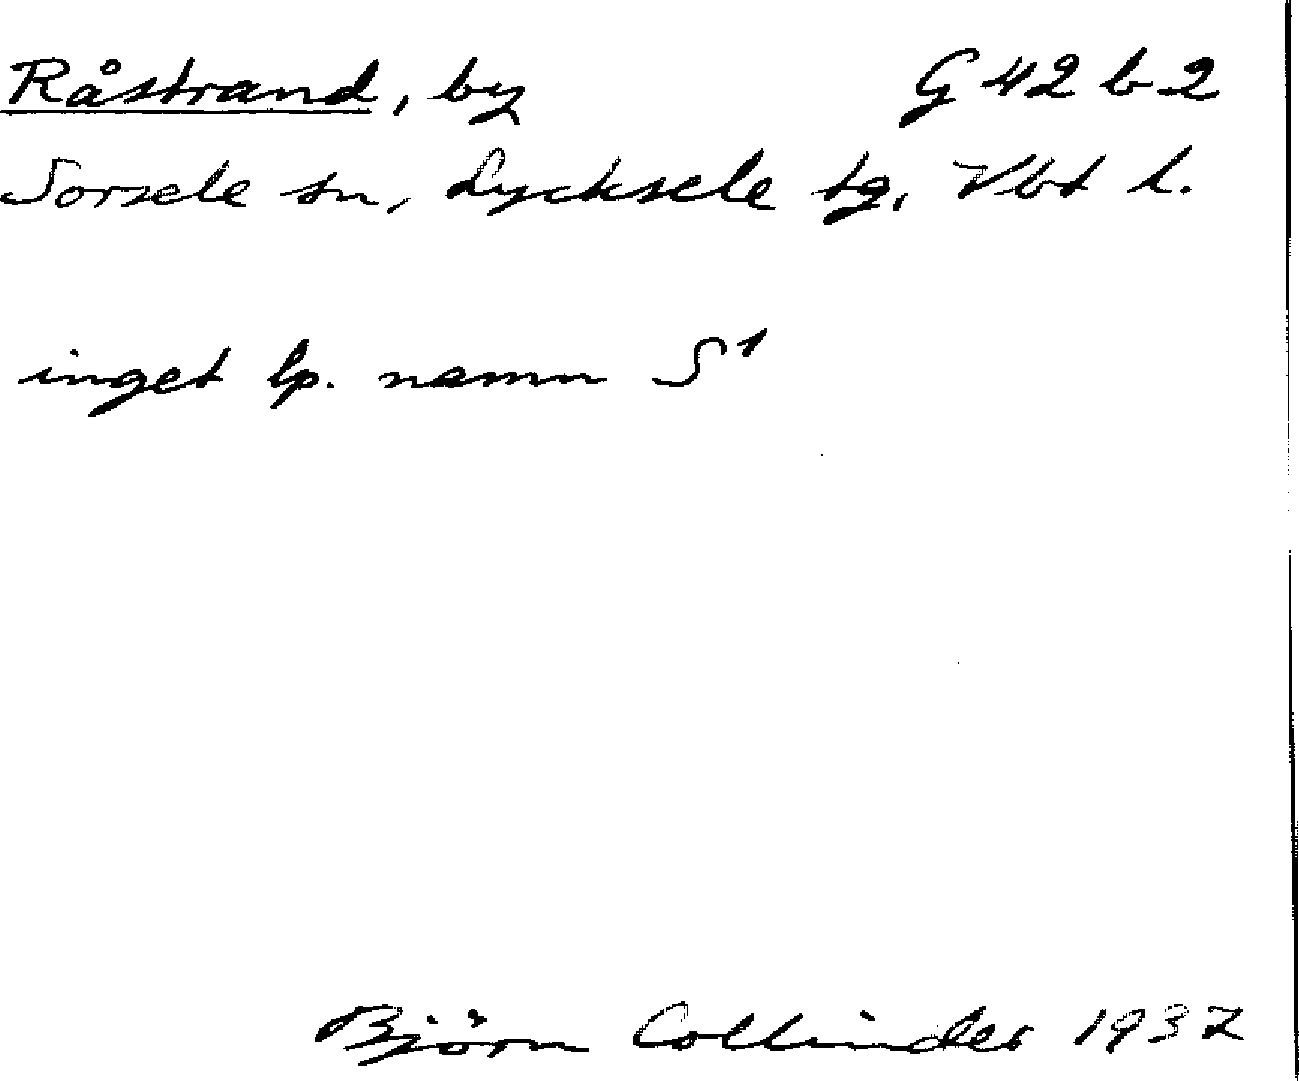 Råstrand, by G 42 b 2
Sorsele sn, Lycksele tg, Vbt l.
inget lp. namn S¹
Björn Collinder 1937